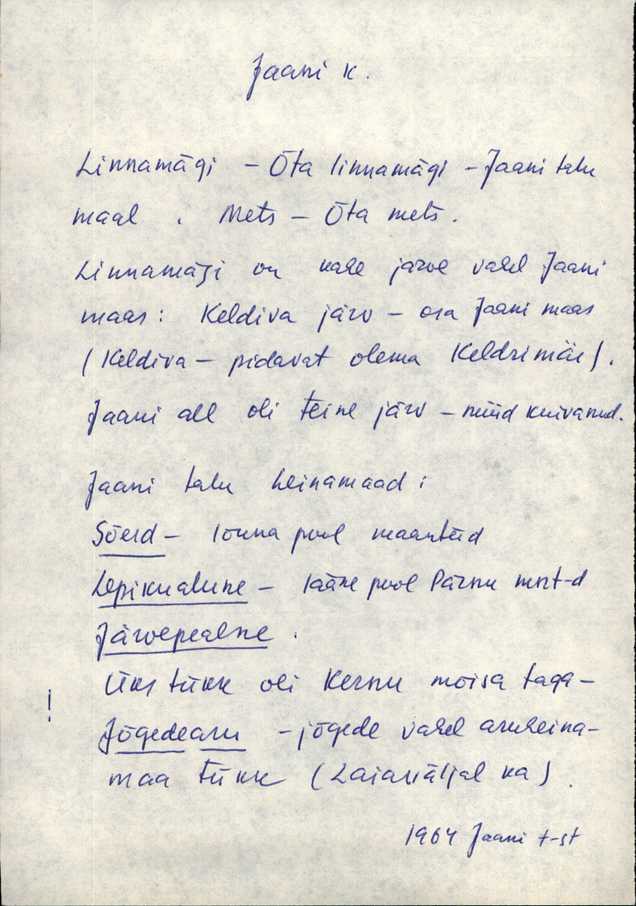 Jaani k.
Linnamägi – Õta linnamägi – Jaani talu
maal . Mets – Õta mets.
Linnamägi on kahe järve vahel Jaani
maas: Keldiva järv – osa Jaani maas
(Keldiva – pidavat olema Keldrimäe).
Jaani all oli teine järv – nüüd kuivanud.
Jaani talu heinamaad:
Sõerd – lõuna pool maanteed
Lepikualune – lääne pool Pärnu mnt-d
Järvepealne.
! Üks tükk oli Kernu mõisa taga –
Jõgedearu – jõgede vahel aruheina-
maa tükk (Laianäljal ka).
1964 Jaani t-st